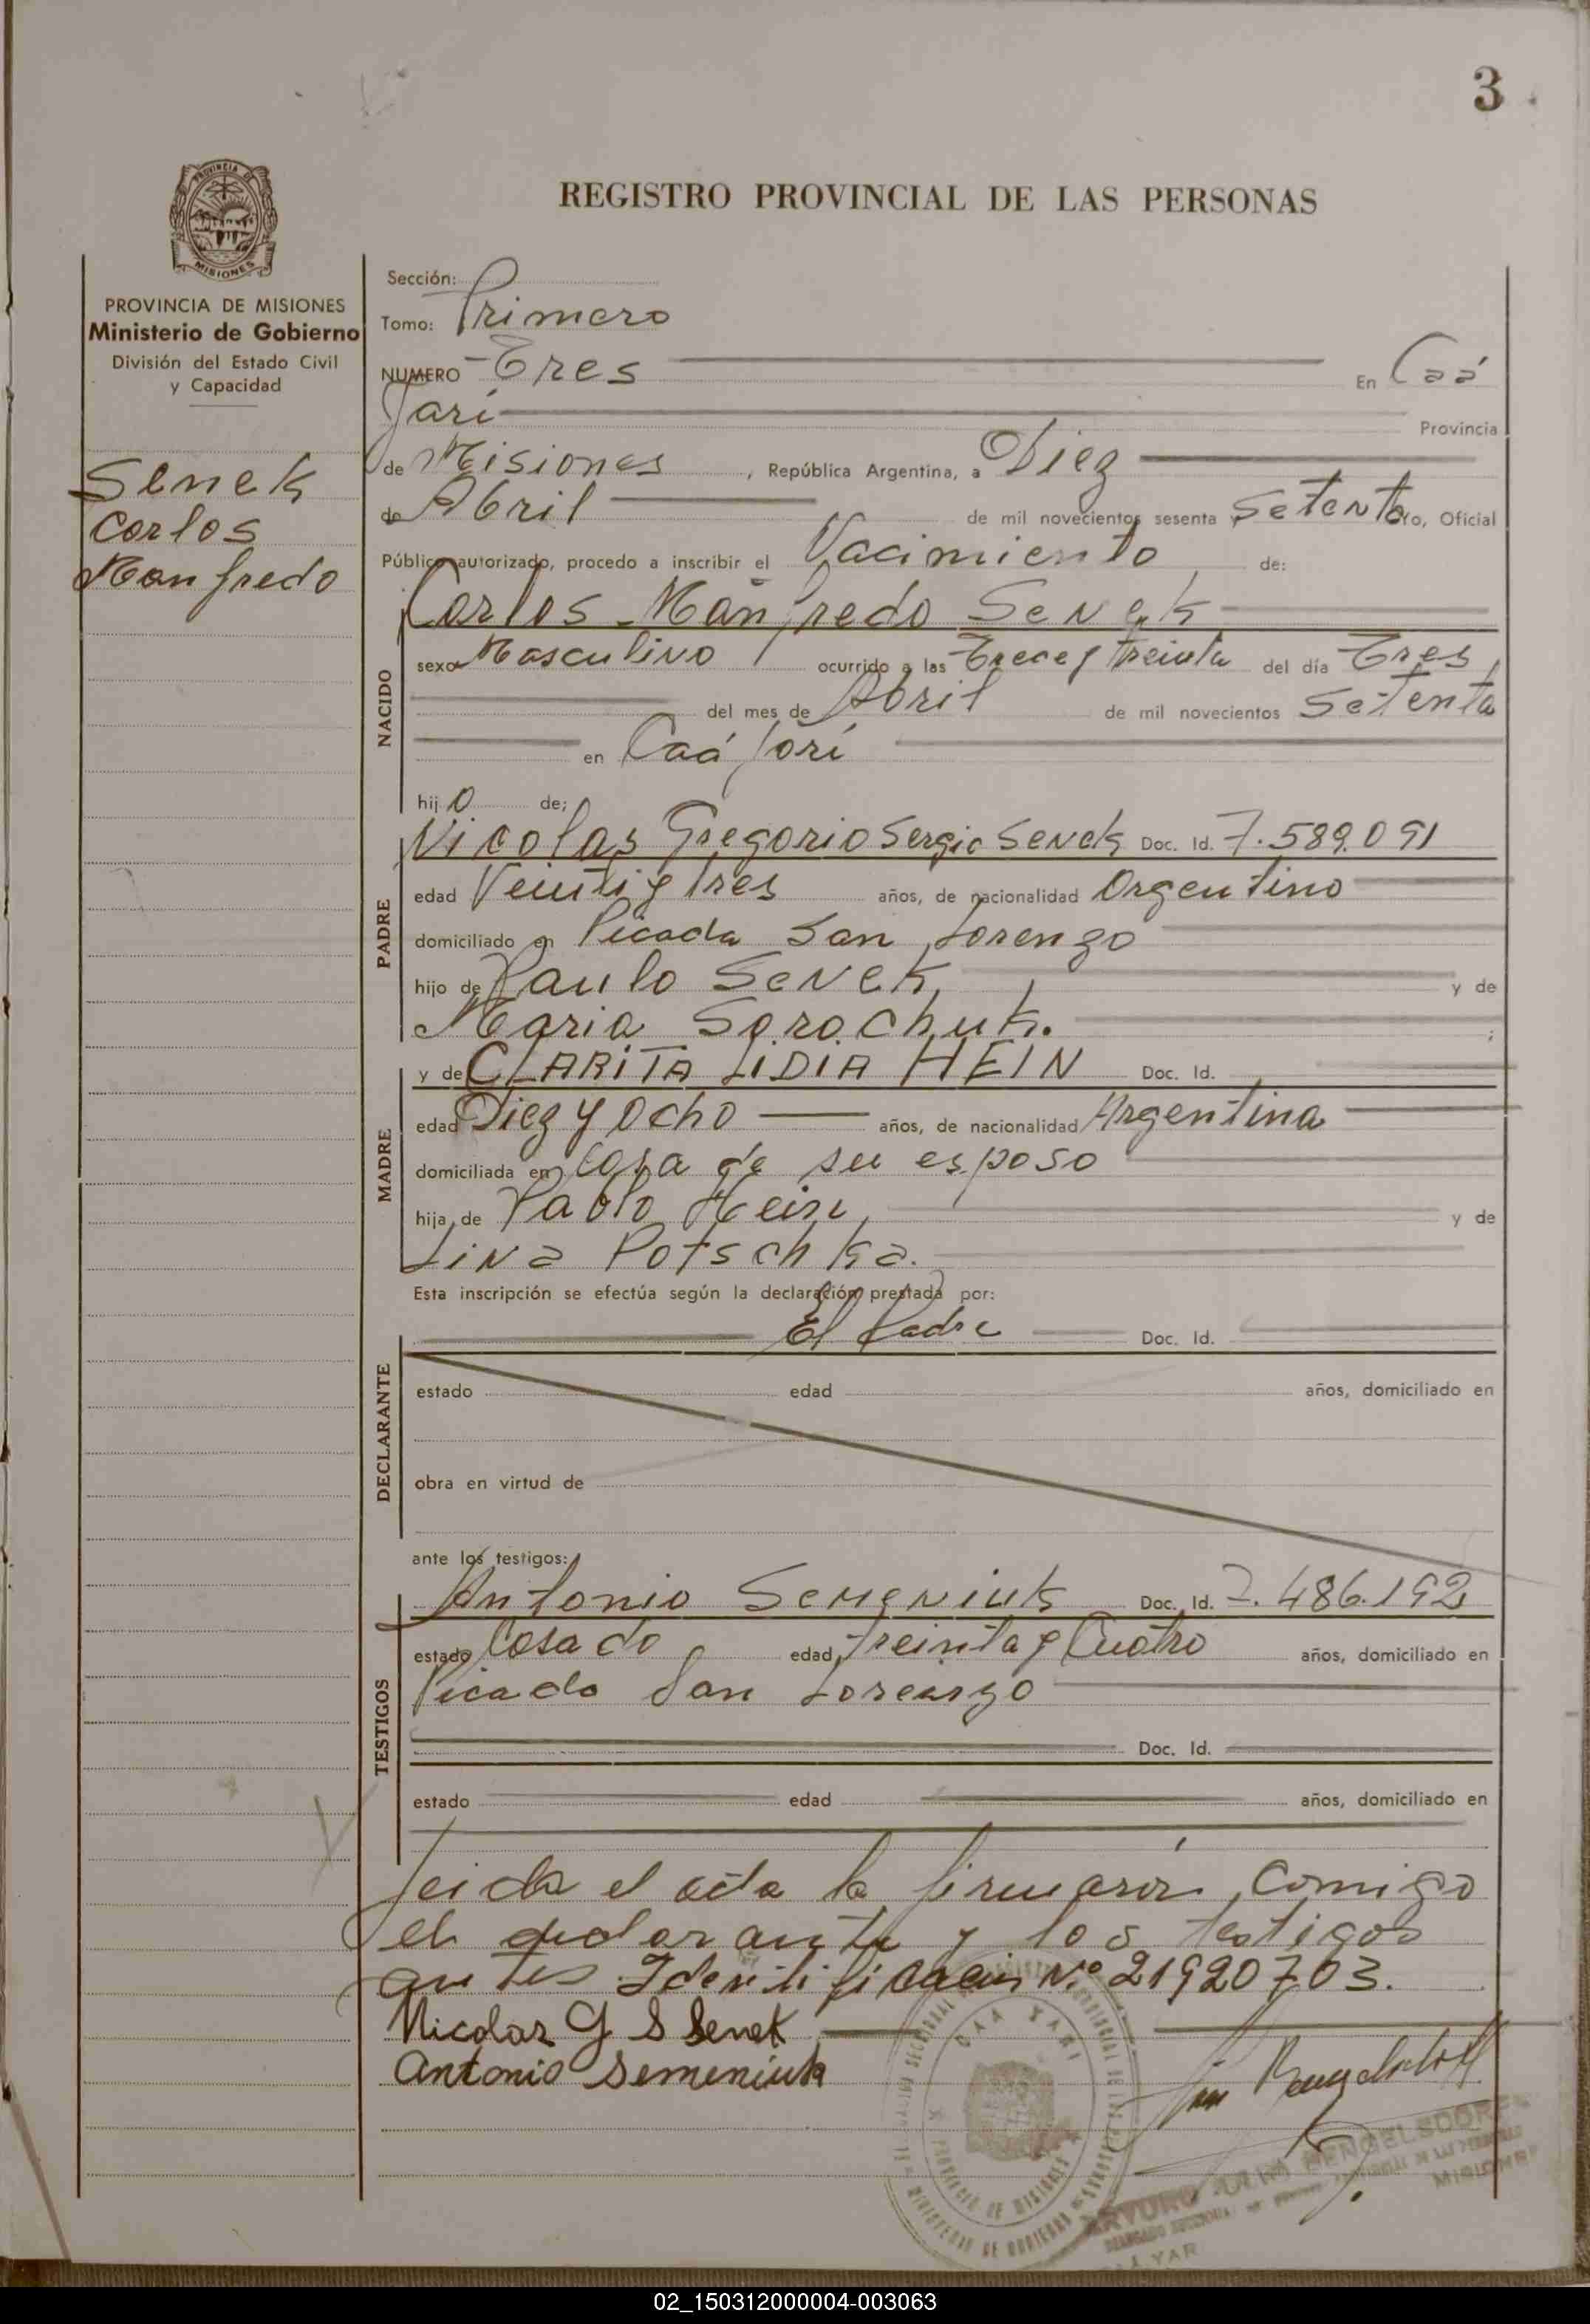 3
REGISTRO PROVINCIAL DE LAS PERSONAS
PROVINCIA DE
MISIONES
PROVINCIA DE MISIONES
Ministerio de Gobierno
División del Estado Civil
y Capacidad
Senek
Carlos
Manfredo
Sección:
Tomo: Primero
NUMERO Tres En Caá
Yarí Provincia
de Misiones, República Argentina, a Diez
de Abril de mil novecientos sesenta Setenta Yo, Oficial
Público autorizado, procedo a inscribir el Nacimiento de:
Carlos Manfredo Senek
NACIDO
sexo Masculino ocurrido a las Trece y treinta del día Tres
del mes de Abril de mil novecientos Setenta
en Caá Yarí
hijo de;
PADRE
Nicolas Gregorio Sergio Senek Doc. Id. 7.589.091
edad Veinti y tres años, de nacionalidad Argentino
domiciliado en Picada San Lorenzo
hijo de Paulo Senek, y de
Maria Sorochuk. ;
MADRE
y de CLARITA LIDIA HEIN Doc. Id.
edad Diez y Ocho años, de nacionalidad Argentina
domiciliada en Casa de su esposo
hija de Pablo Hein, y de
Lina Potschka.
Esta inscripción se efectúa según la declaración prestada por:
El Padre Doc. Id.
DECLARANTE
estado edad años, domiciliado en
obra en virtud de
ante los testigos:
TESTIGOS
Antonio Semeniuk Doc. Id. 7.486.192
estado Casado edad, treinta y Cuatro años, domiciliado en
Picada San Lorenzo
Doc. Id.
estado edad años, domiciliado en
Leida el acta la firmarón, comigo
el declarante y los testigos
antes Identificacin Nº 21920703.
Nicolas G S Senek
Antonio Semeniuk
CAA YARI
PROVINCIA DE MISIONES
MINISTERIO DE GOBIERNO
ARTURO BENGELSDORF
MISIONES
02_150312000004-003063